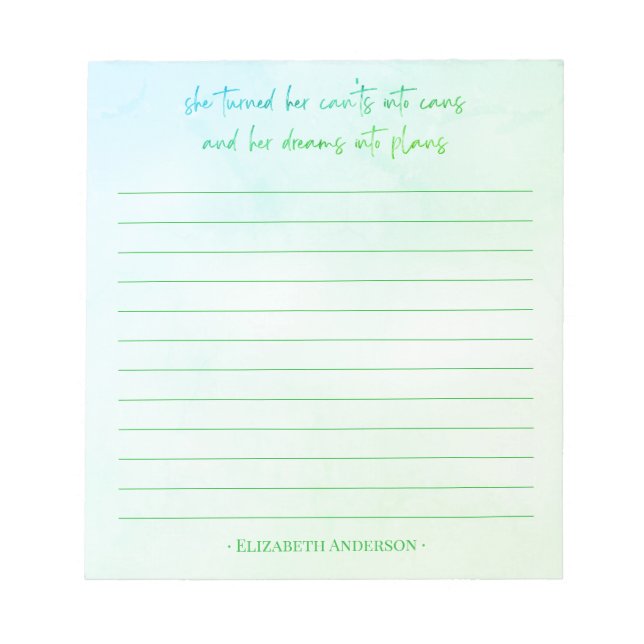 she turned her can'ts into cans
and her dreams into plans
· Elizabeth Anderson ·